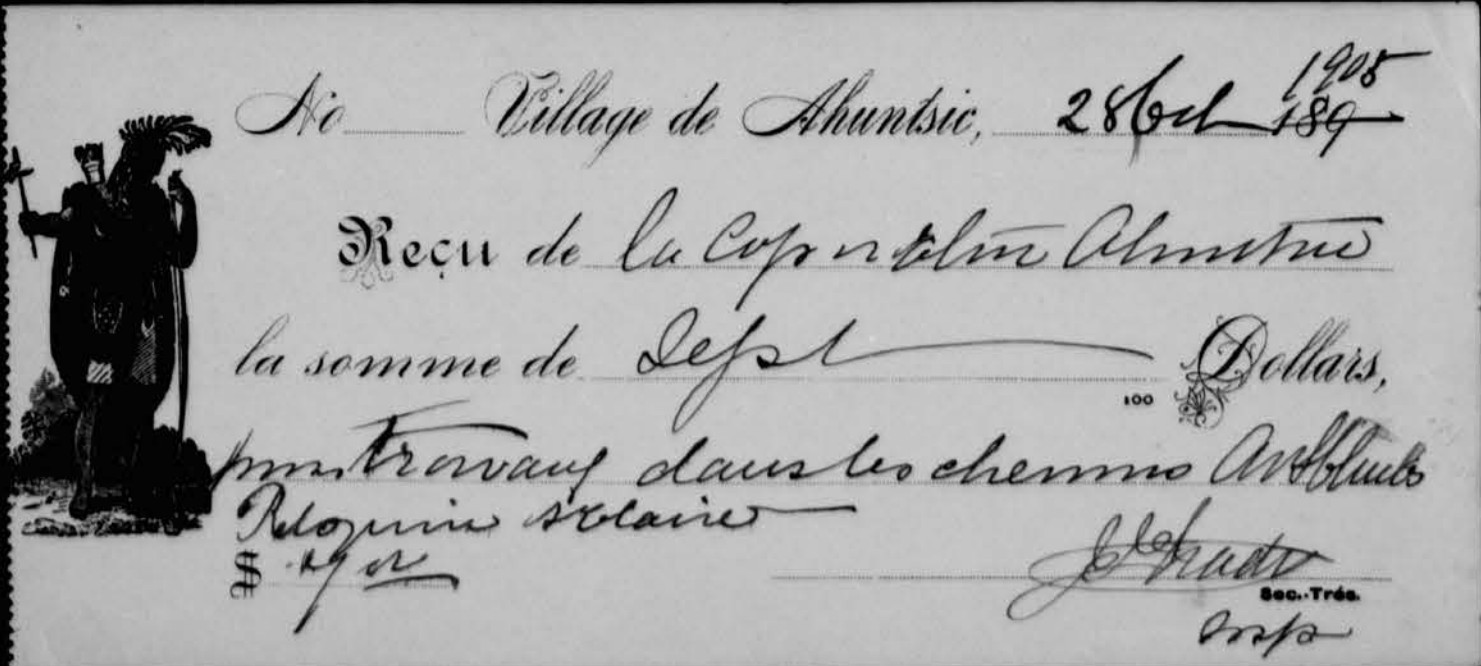 No Village de Ahuntsic, 28 Oct 1905 189
Reçu de la Corporation Ahuntsic
la somme de Sept Dollars,
100
pour Travaux dans les chemins
Peloquin
$
Sec.-Trés.
insp